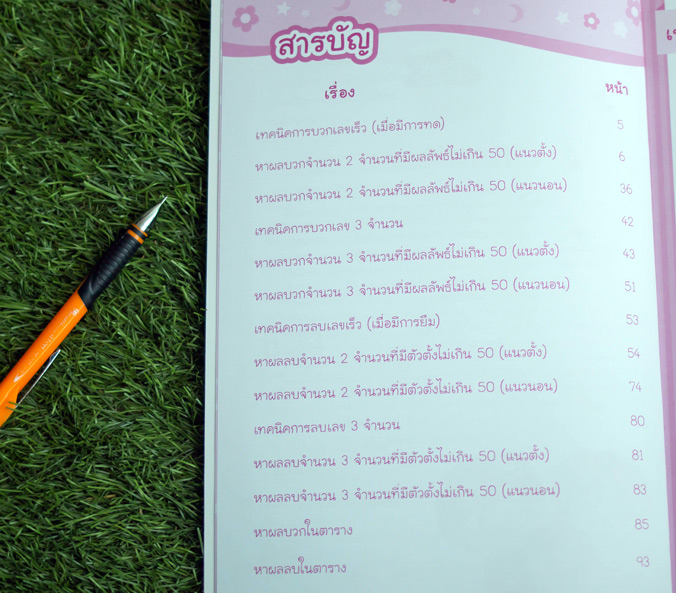 สารบัญ
เรื่อง หน้า
เทคนิคการบวกเลขเร็ว (เมื่อมีการทด) 5
หาผลบวกจำนวน 2 จำนวนที่มีผลลัพธ์ไม่เกิน 50 (แนวตั้ง) 6
หาผลบวกจำนวน 2 จำนวนที่มีผลลัพธ์ไม่เกิน 50 (แนวนอน) 36
เทคนิคการบวกเลข 3 จำนวน 42
หาผลบวกจำนวน 3 จำนวนที่มีผลลัพธ์ไม่เกิน 50 (แนวตั้ง) 43
หาผลบวกจำนวน 3 จำนวนที่มีผลลัพธ์ไม่เกิน 50 (แนวนอน) 51
เทคนิคการลบเลขเร็ว (เมื่อมีการยืม) 53
หาผลลบจำนวน 2 จำนวนที่มีตัวตั้งไม่เกิน 50 (แนวตั้ง) 54
หาผลลบจำนวน 2 จำนวนที่มีตัวตั้งไม่เกิน 50 (แนวนอน) 74
เทคนิคการลบเลข 3 จำนวน 80
หาผลลบจำนวน 3 จำนวนที่มีตัวตั้งไม่เกิน 50 (แนวตั้ง) 81
หาผลลบจำนวน 3 จำนวนที่มีตัวตั้งไม่เกิน 50 (แนวนอน) 83
หาผลบวกในตาราง 85
หาผลลบในตาราง 93